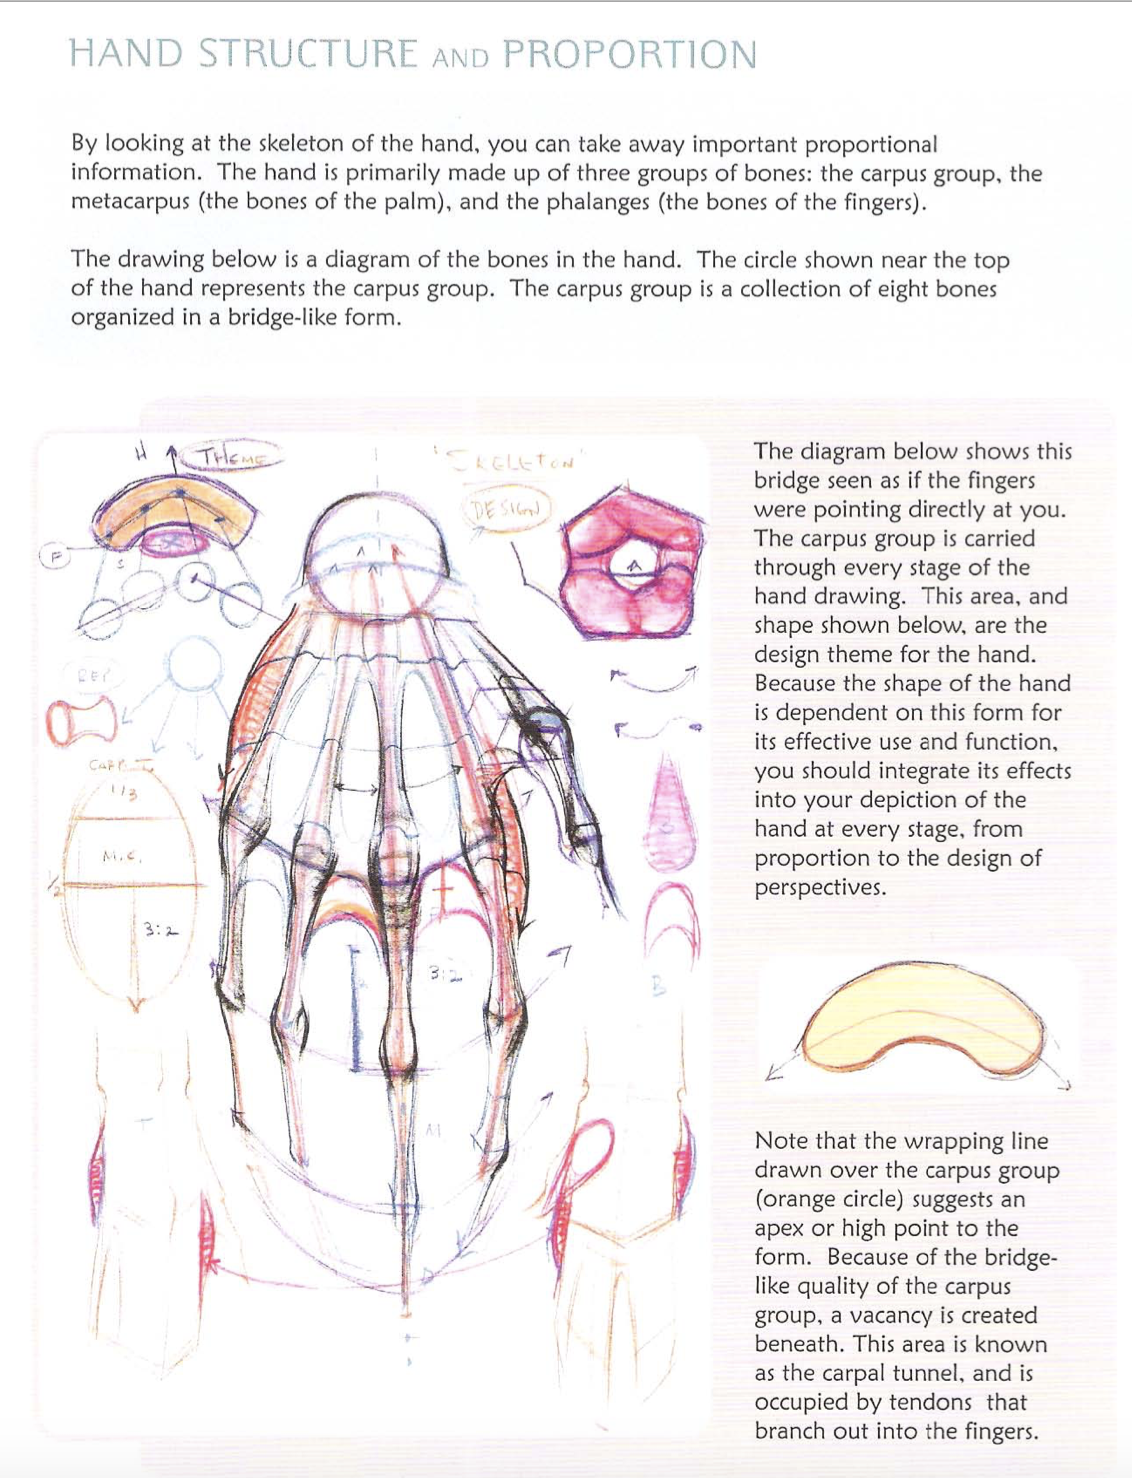 HAND STRUCTURE AND PROPORTION
By looking at the skeleton of the hand, you can take away important proportional
information.  The hand is primarily made up of three groups of bones: the carpus group, the
metacarpus (the bones of the palm), and the phalanges (the bones of the fingers).
The drawing below is a diagram of the bones in the hand.  The circle shown near the top
of the hand represents the carpus group.  The carpus group is a collection of eight bones
organized in a bridge-like form.
H
THEME
"SKELETON"
DESIGN
F
S
A
A
REP.
1/3
M.C.
1/2
3:2
3:2
B
The diagram below shows this
bridge seen as if the fingers
were pointing directly at you.
The carpus group is carried
through every stage of the
hand drawing.  This area, and
shape shown below, are the
design theme for the hand.
Because the shape of the hand
is dependent on this form for
its effective use and function,
you should integrate its effects
into your depiction of the
hand at every stage, from
proportion to the design of
perspectives.
Note that the wrapping line
drawn over the carpus group
(orange circle) suggests an
apex or high point to the
form.  Because of the bridge-
like quality of the carpus
group, a vacancy is created
beneath. This area is known
as the carpal tunnel, and is
occupied by tendons  that
branch out into the fingers.